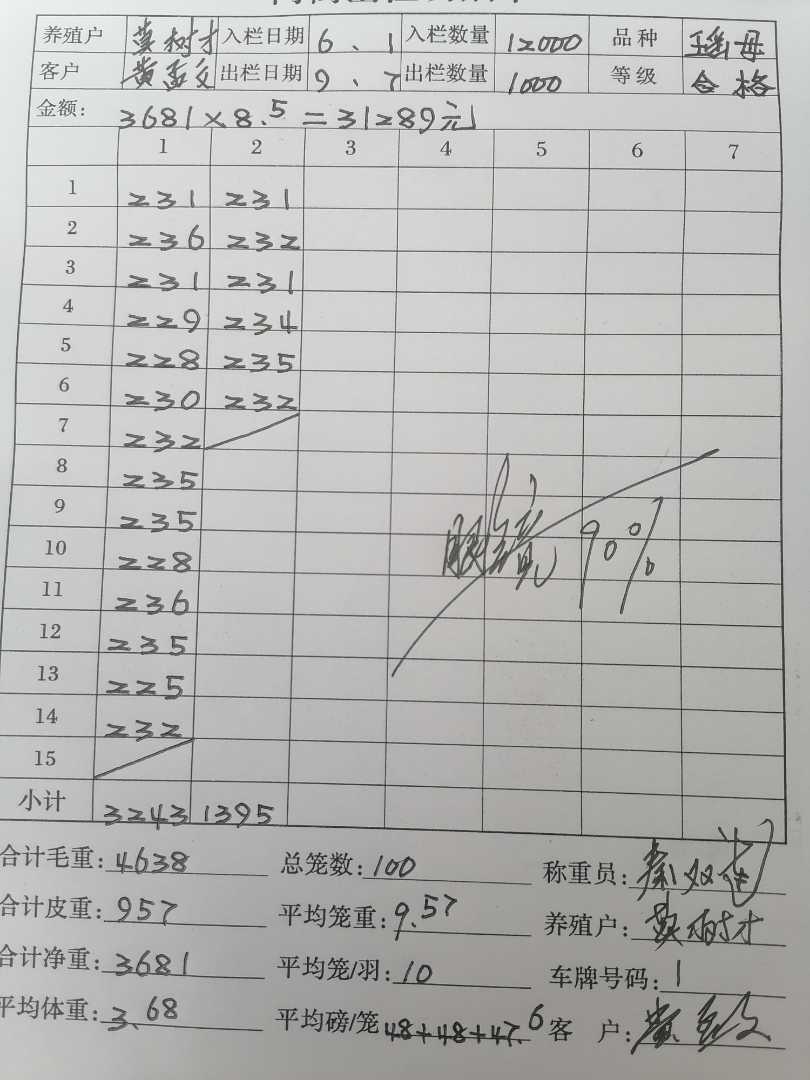 养殖户 黄树才 入栏日期 6、1 入栏数量 12000 品种 母
客户 黄孟交 出栏日期 9、7 出栏数量 1000 等级 合格
金额: 3681×8.5=31289元
1 2 3 4 5 6 7
1 231 231
2 236 232
3 231 231
4 229 234
5 228 235
6 230 232
7 232
8 235
9 235
10 228
11 236
12 235
13 225
14 232
15
眼镜90%
小计 3243 1395
合计毛重: 4638 总笼数: 100 称重员:
合计皮重: 957 平均笼重: 9.57 养殖户: 黄树才
合计净重: 3681 平均笼/羽: 10 车牌号码: 1
平均体重: 3.68 平均磅/笼 48+48+47.6 客 户: